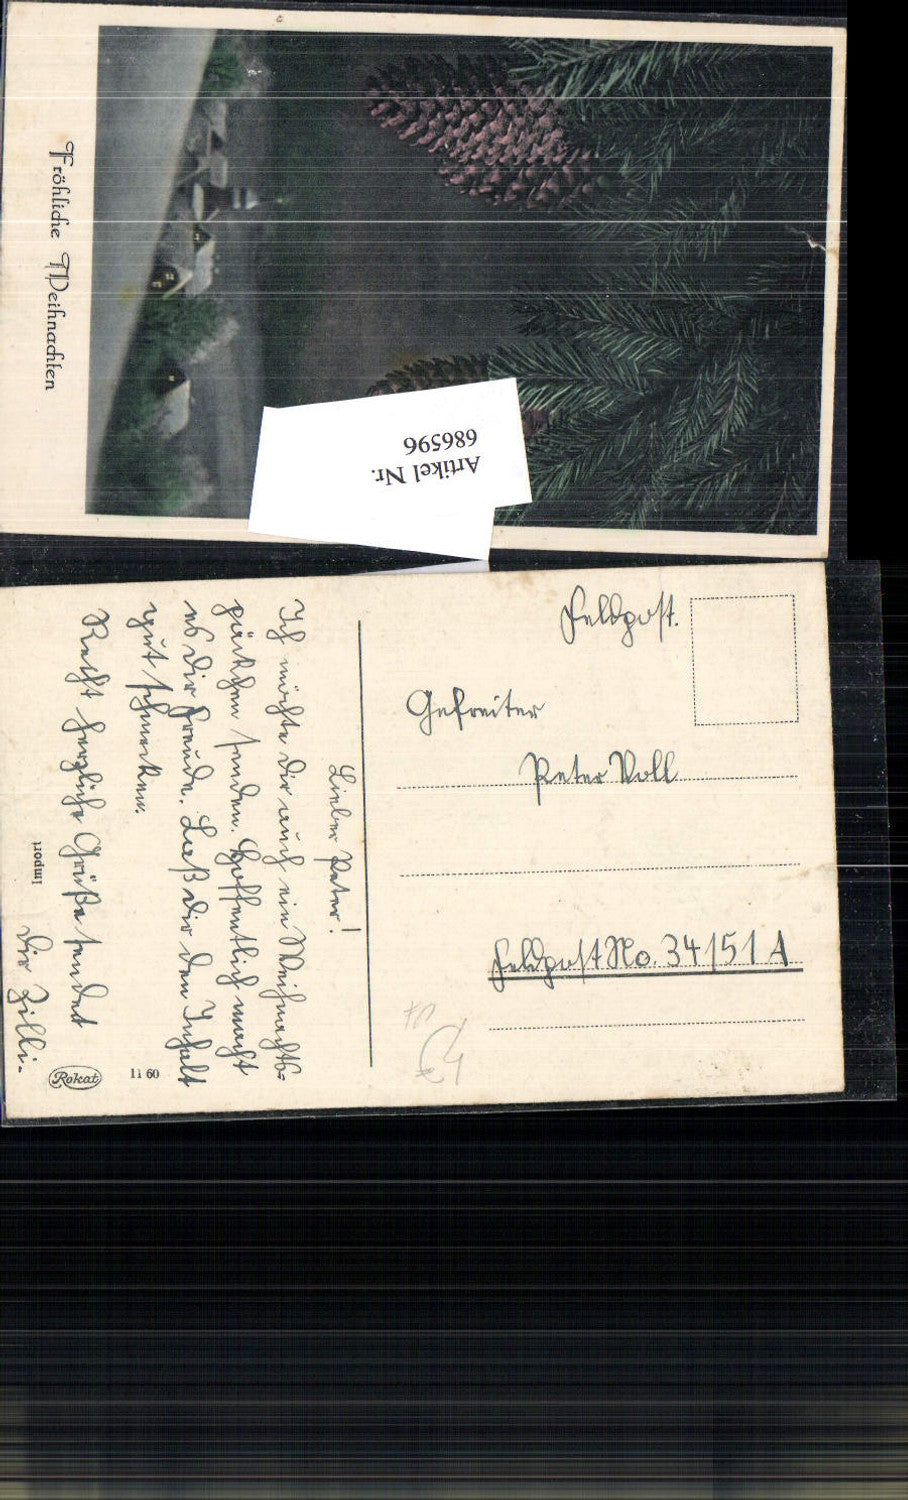 Fröhliche Weihnachten
Artikel Nr.
686596
Feldpost.
Gefreiter
Peter Voll
Feldpost No. 34151 A
Lieber Peter!
Ich möchte dir auch ein Weihnachts-
päckchen senden. Hoffentlich macht
es dir Freude. Laß dir den Inhalt
gut schmecken.
Recht herzliche Grüße sendet
dir Zilli.
Import
Rokat
1160